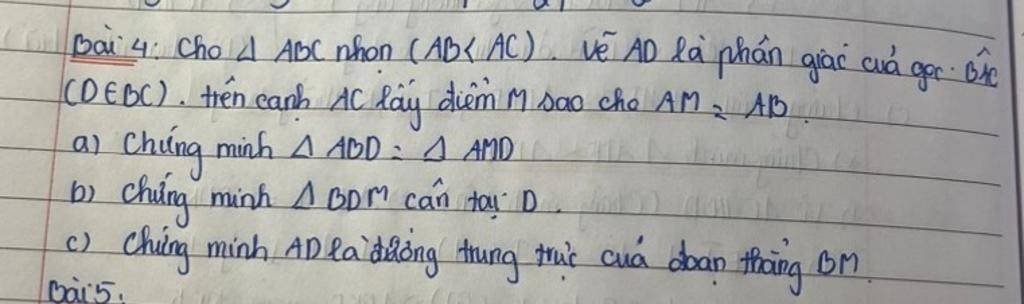 Bài 4: Cho Δ ABC nhọn (AB < AC). Vẽ AD là phân giác của góc BÂC
(D∈BC). trên cạnh AC lấy điểm M sao cho AM = AB.
a) Chứng minh Δ ABD = Δ AMD
b) Chứng minh Δ BDM cân tại D.
c) Chứng minh AD là đường trung trực của đoạn thẳng BM.
Bài 5: